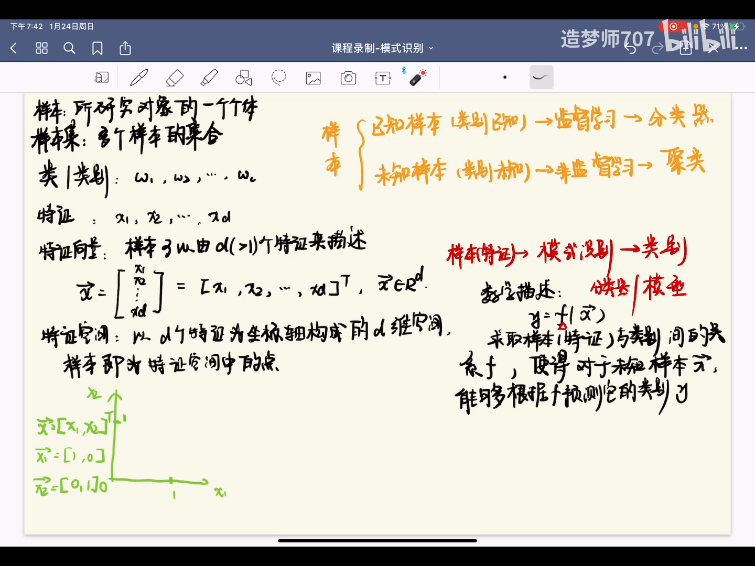 下午7:42 1月24日周日
71%
课程录制-模式识别
造梦师707 bilibili
样本:所研究对象的一个个体
样本集:多个样本的集合
类|类别:ω₁,ω₂,…,ωc
特征:x₁,x₂,…,xd
特征向量:样本可以由d(>1)个特征来描述
x⃗=[x₁ x₂ ⋮ xd]=[x₁,x₂,…,xd]ᵀ,x⃗∈Rᵈ.
特征空间:以d个特征为坐标轴构成的d维空间,
样本即为特征空间中的点.
x⃗=[x₁,x₂]ᵀ
x⃗₁=[1,0]
x⃗₂=[0,1]
x₂
1
0
1
x₁
样本
已知样本(类别已知)→监督学习→分类器.
未知样本(类别未知)→非监督学习→聚类
样本(特征)→模式识别→类别
分类器|模型
数学描述:
y=f(x⃗)
求取样本(特征)与类别间的关
系f,使得对于未知样本x⃗,
能够根据f预测它的类别y